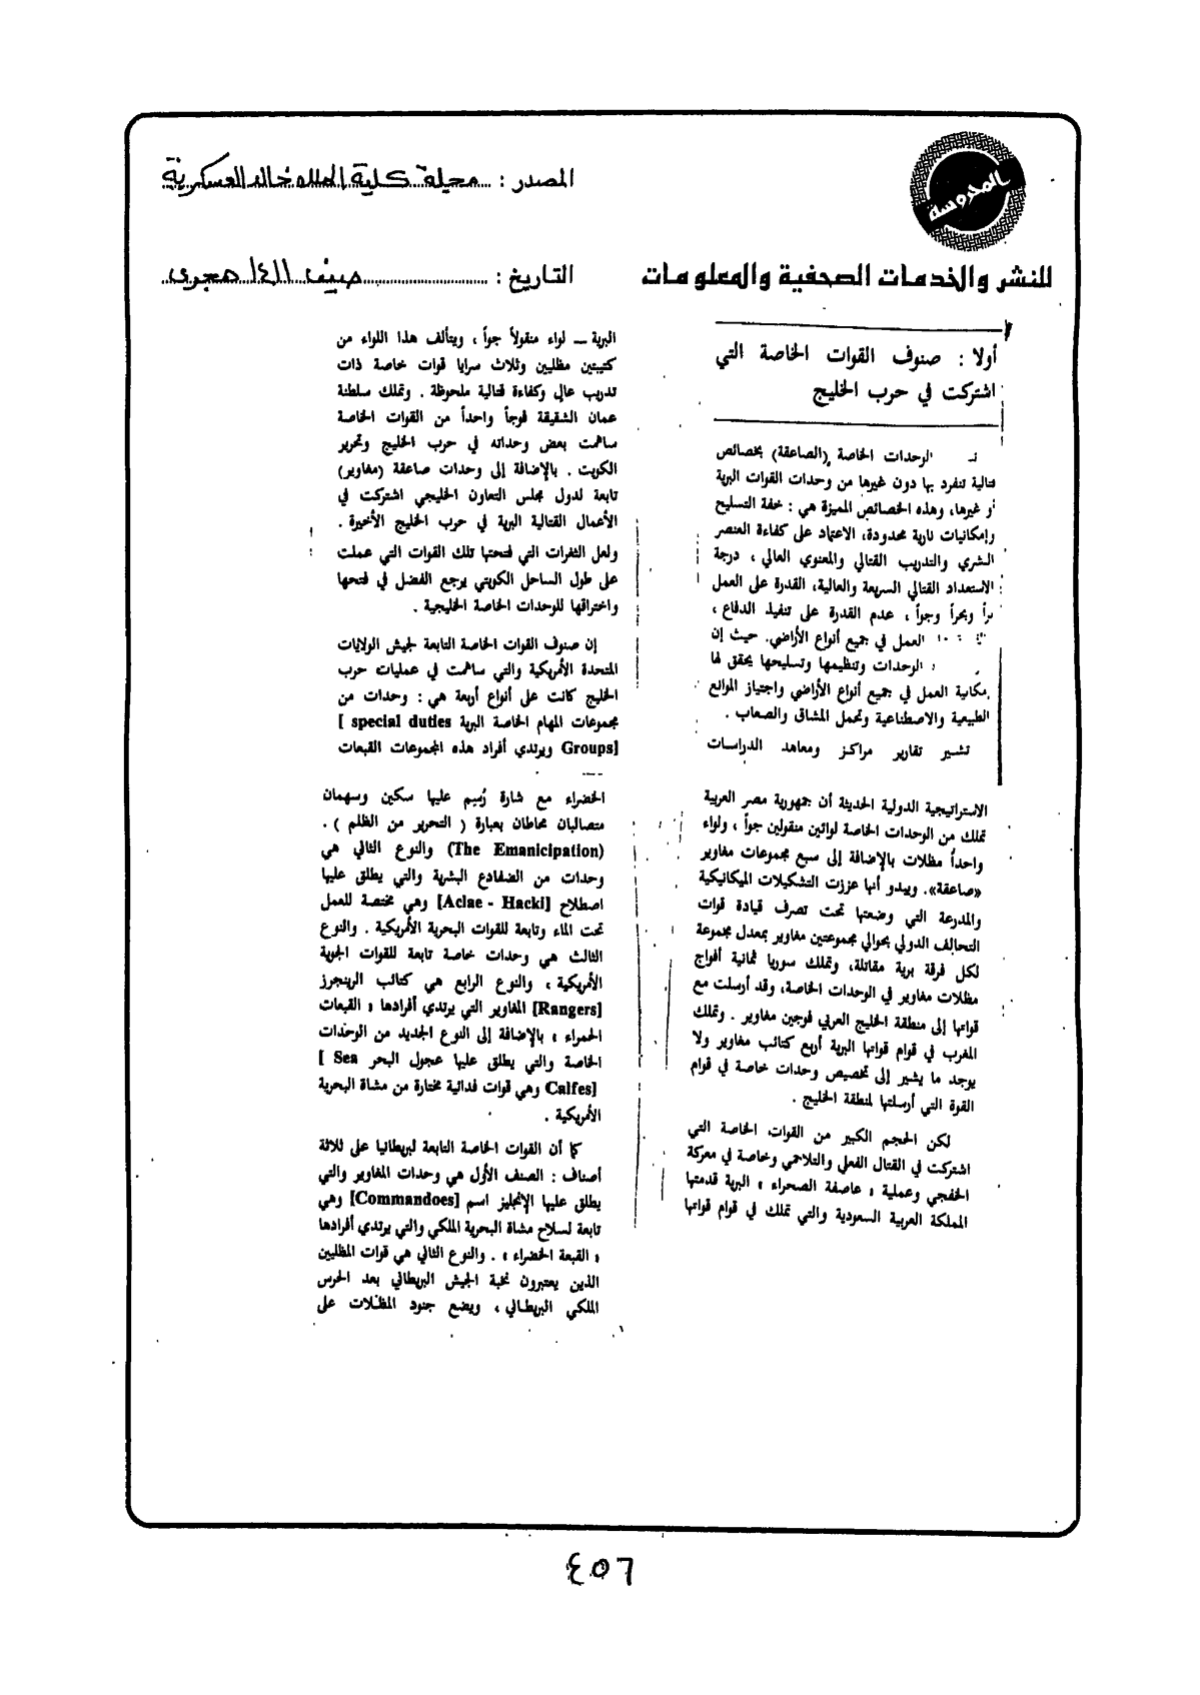 المحروسة
للنشر والخدمات الصحفية والمعلومات
المصدر : مجلة كلية الملك خالد العسكرية
التاريخ : صيف ١٤١١ هجرى
أولا : صنوف القوات الخاصة التي
اشتركت في حرب الخليج
الوحدات الخاصة (الصاعقة) بخصائص
قتالية تنفرد بها دون غيرها من وحدات القوات البرية
أو غيرها، وهذه الخصائص المميزة هي : خفة التسليح
وإمكانيات نارية محدودة، الاعتماد على كفاءة العنصر
البشري والتدريب القتالي والمعنوي العالي ، درجة
الاستعداد القتالي السريعة والعالية، القدرة على العمل
براً وبحراً وجواً ، عدم القدرة على تنفيذ الدفاع ،
العمل في جميع أنواع الأراضي. حيث إن
الوحدات وتنظيمها وتسليحها يحقق لها
إمكانية العمل في جميع أنواع الأراضي واجتياز الموانع
الطبيعية والاصطناعية وتحمل المشاق والصعاب .
تشير تقارير مراكز ومعاهد الدراسات
الاستراتيجية الدولية الحديثة أن جمهورية مصر العربية
تملك من الوحدات الخاصة لوائين منقولين جواً ، ولواء
واحداً مظلات بالإضافة إلى سبع مجموعات مغاوير
«صاعقة». ويبدو أنها عززت التشكيلات الميكانيكية
والمدرعة التي وضعتها تحت تصرف قيادة قوات
التحالف الدولي بحوالي مجموعتين مغاوير بمعدل مجموعة
لكل فرقة برية مقاتلة، وتملك سوريا ثمانية أفواج
مظلات مغاوير في الوحدات الخاصة، وقد أرسلت مع
قواتها إلى منطقة الخليج العربي فوجين مغاوير . وتملك
المغرب في قوام قواتها البرية أربع كتائب مغاوير ولا
يوجد ما يشير إلى تخصيص وحدات خاصة في قوام
القوة التي أرسلتها لمنطقة الخليج .
لكن الحجم الكبير من القوات الخاصة التي
اشتركت في القتال الفعلي والتلاحمي وخاصة في معركة
الخفجي وعملية « عاصفة الصحراء » البرية قدمتها
المملكة العربية السعودية والتي تملك في قوام قواتها
البرية ــ لواء منقولاً جواً ، ويتألف هذا اللواء من
كتيبتين مظليين وثلاث سرايا قوات خاصة ذات
تدريب عالي وكفاءة قتالية ملحوظة . وتملك سلطنة
عمان الشقيقة فوجاً واحداً من القوات الخاصة
ساهمت بعض وحداته في حرب الخليج وتحرير
الكويت . بالإضافة إلى وحدات صاعقة (مغاوير)
تابعة لدول مجلس التعاون الخليجي اشتركت في
الأعمال القتالية البرية في حرب الخليج الأخيرة .
ولعل الثغرات التي فتحتها تلك القوات التي عملت
على طول الساحل الكويتي يرجع الفضل في فتحها
واختراقها للوحدات الخاصة الخليجية .
إن صنوف القوات الخاصة التابعة لجيش الولايات
المتحدة الأمريكية والتي ساهمت في عمليات حرب
الخليج كانت على أنواع أربعة هي : وحدات من
مجموعات المهام الخاصة البرية special duties ]
[Groups ويرتدي أفراد هذه المجموعات القبعات
الخضراء مع شارة رُسم عليها سكين وسهمان
متصالبان محاطان بعبارة ( التحرير من الظلم ) .
(The Emanicipation) والنوع الثاني هي
وحدات من الضفادع البشرية والتي يطلق عليها
اصطلاح [Aclae - Hacki] وهي مختصة للعمل
تحت الماء وتابعة للقوات البحرية الأمريكية . والنوع
الثالث هي وحدات خاصة تابعة للقوات الجوية
الأمريكية ، والنوع الرابع هي كتائب الرينجرز
[Rangers] المغاوير التي يرتدي أفرادها « القبعات
الحمراء » بالإضافة إلى النوع الجديد من الوحدات
الخاصة والتي يطلق عليها عجول البحر Sea ]
[Calfes وهي قوات فدائية مختارة من مشاة البحرية
الأمريكية .
كما أن القوات الخاصة التابعة لبريطانيا على ثلاثة
أصناف : الصنف الأول هي وحدات المغاوير والتي
يطلق عليها الإنجليز اسم [Commandoes] وهي
تابعة لسلاح مشاة البحرية الملكي والتي يرتدي أفرادها
« القبعة الخضراء » . والنوع الثاني هي قوات المظليين
الذين يعتبرون نخبة الجيش البريطاني بعد الحرس
الملكي البريطاني ، ويضع جنود المظلات على
٤٥٦